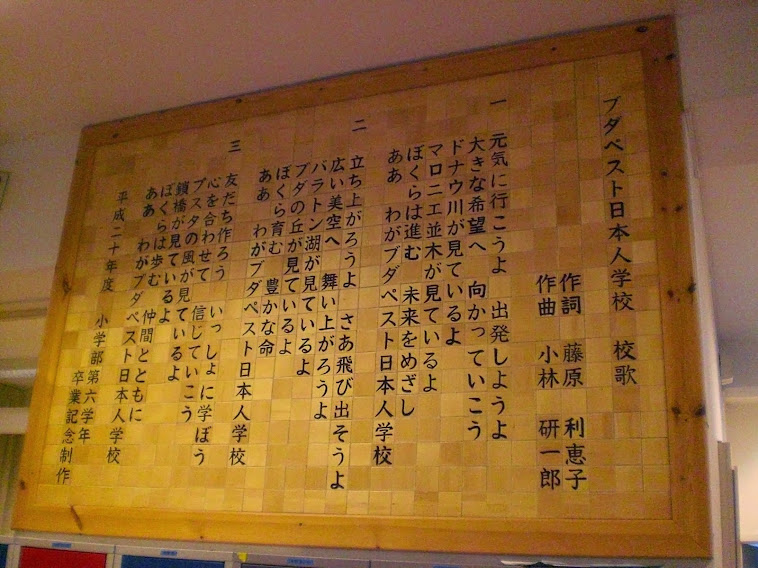 ブダペスト日本人学校 校歌
作詞 藤原 利恵子
作曲 小林 研一郎
一 元気に行こうよ 出発しようよ
大きな希望へ 向かっていこう
ドナウ川が見ているよ
マロニエ並木が見ているよ
ぼくらは進む 未来をめざし
ああ わがブダペスト日本人学校
二 立ち上がろうよ さあ飛び出そうよ
広い美空へ 舞い上がろうよ
バラトン湖が見ているよ
ブダの丘が見ているよ
ぼくら育む 豊かな命
ああ わがブダペスト日本人学校
三 友だち作ろう いっしょに学ぼう
心を合わせて 信じていこう
プスタの風が見ているよ
鎖橋が見ているよ
ぼくらは歩む 仲間とともに
ああ わがブダペスト日本人学校
平成二十年度 小学部第六学年
卒業記念制作